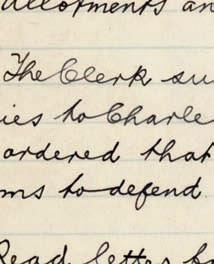 allotments an
The Clerk su
ies to Charle
ordered that
ms to defend
Read letter fr